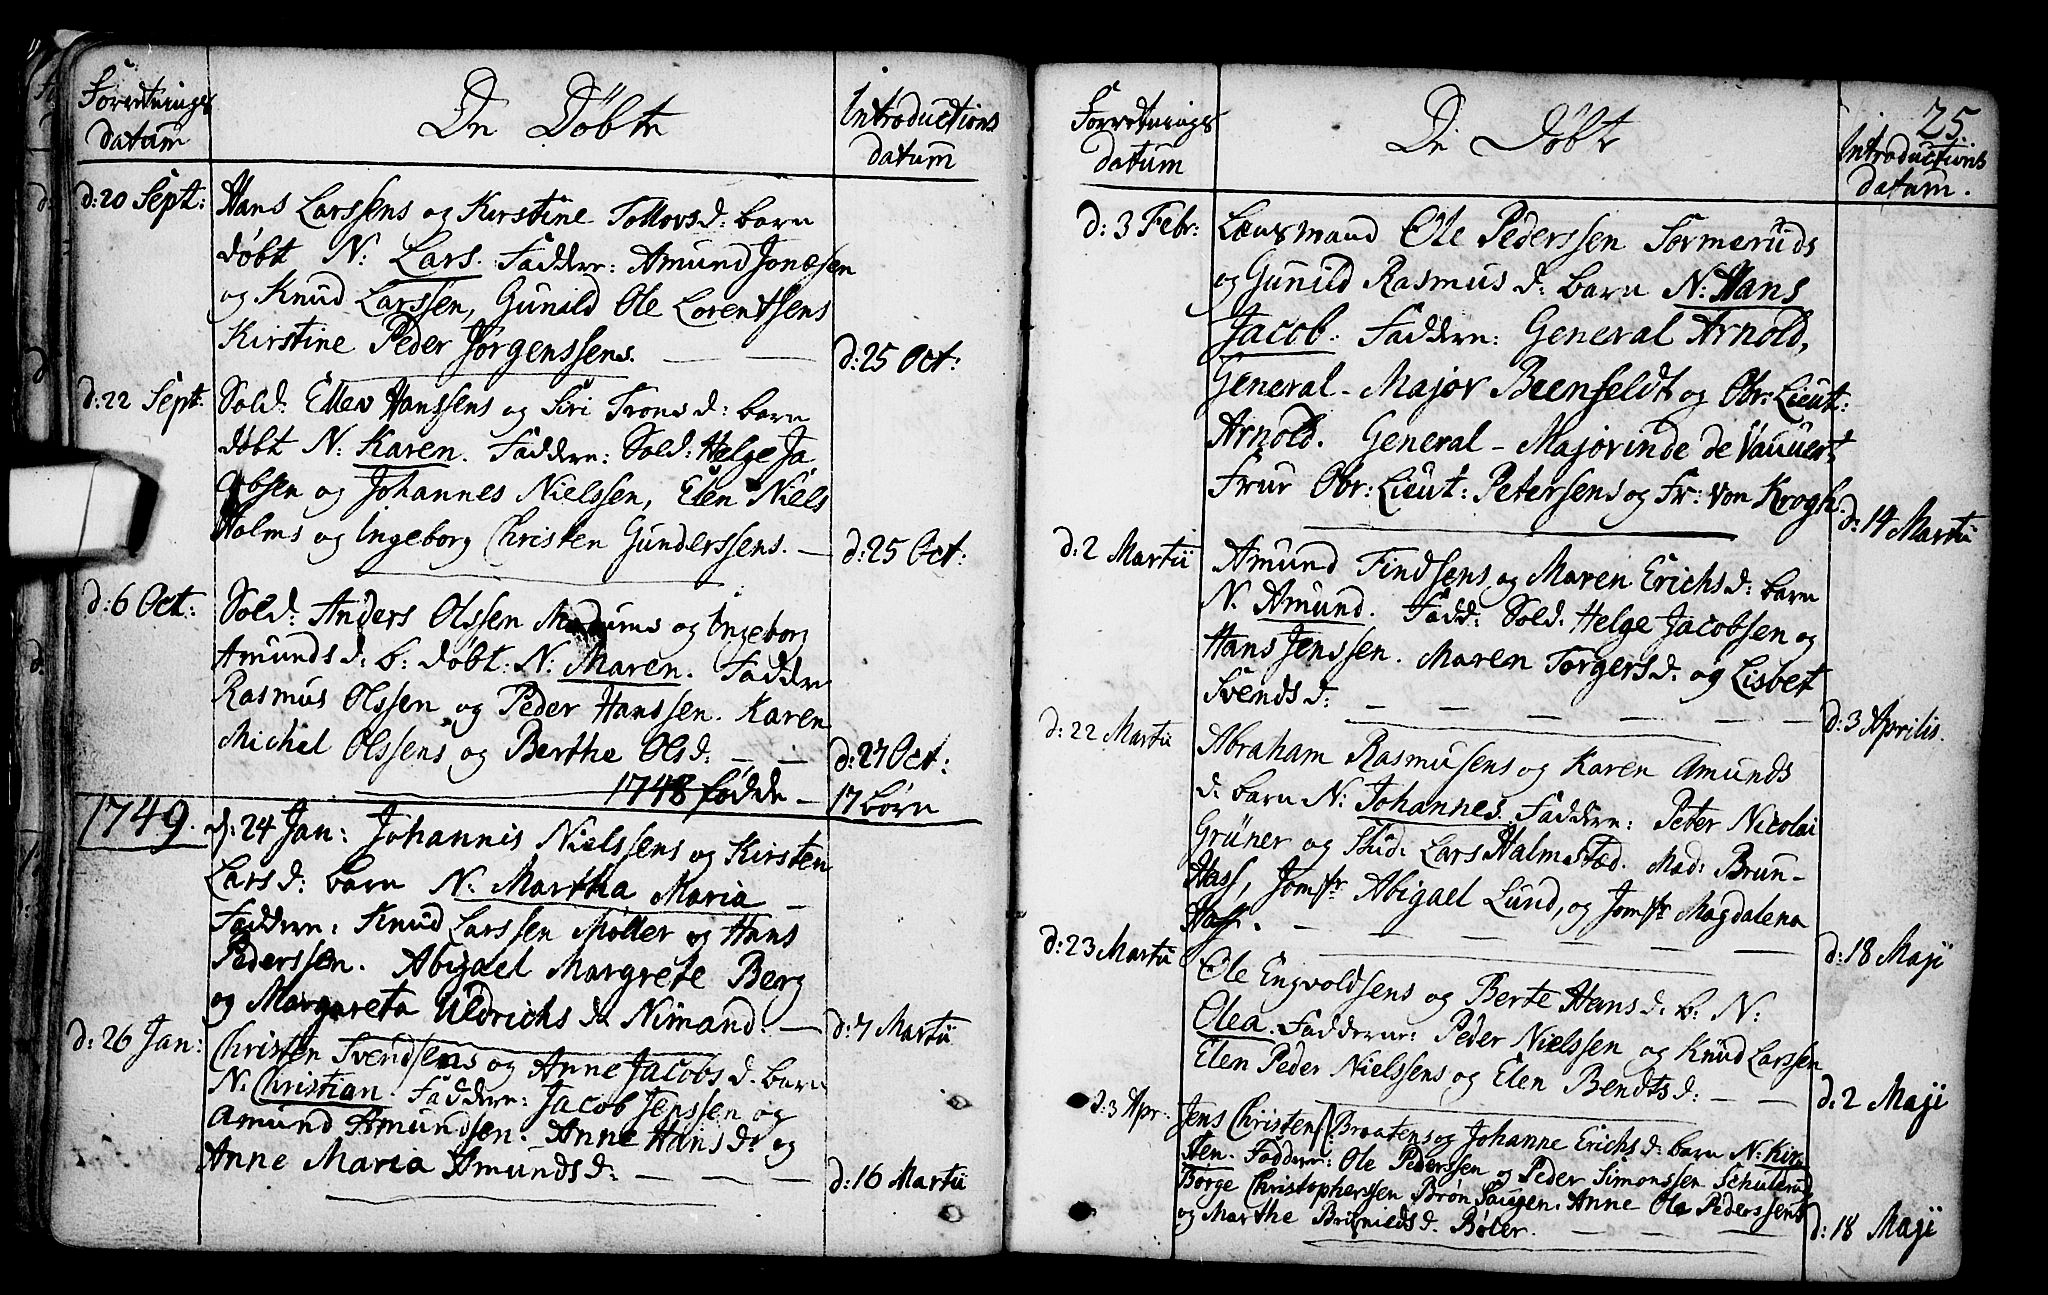 Forretnings
datum
De Döbte
Introductions
datum
d: 20 Sept:
Hans Larssens og Kirstine Tollovsd: barn
døbt N: Lars. Faddere: Amund Jonæsen
og Knud Larssen, Gunild Ole Lorentsens
Kirstine Peder Jørgenssens.
d: 25 Oct:
d: 22 Sept:
Sold: Ellev Hanssens og Siri Trons d: barn
døbt N: Karen. Faddere: Sold: Helge Ja
cobsen og Johannes Nielssen, Elen Niels
Holms og Ingeborg Christen Gunderssens.
d: 25 Oct:
d: 6 Oct:
Sold: Anders Olssen og Ingeborg
Amunds d: b: døbt. N: Maren. Faddere
Rasmus Olssen og Peder Hanssen. Karen
Michel Olssens og Berthe Olsd:
d: 27 Oct:
1748 fødde – 17 børn
1749.
d: 24 Jan: Johannis Nielssens og Kirsten
Lars d: barn N: Martha Maria
Faddere: Knud Larssen Møller og Hans
Pederssen. Abigael Margrete Berg
og Margareta Uldrichs d: Nimand.
d: 7 Martii
d: 26 Jan:
Christen Svendsens og Anne Jacobs d. barn
N: Christian. Faddere: Jacob Jenssen og
Amund Amundsen. Anne Hans d: og
Anne Maria Amunds d:
d: 16 Martii
25.
Forretnings
datum
De Döbte
Introductions
datum.
d: 3 Febr:
Lænsmand Ole Pederssen Sørmeruds
og Gunild Rasmus d: barn N: Hans
Jacob. Faddere: General Arnold,
General-Major Beenfeldt og Obr: Lieut:
Arnold. General-Majorinde de Vauuert
Frur Obr: Lieut: Petersens og Fr: von Krogh.
d: 14 Martii
d: 2 Martii
Amund Findsens og Maren Erichs d: barn
N. Amund. Fadd: Sold. Helge Jacobsen og
Hans Jenssen. Maren Torgers d. og Lisbet
Svends d:
d: 3 Aprilis.
d: 22 Martii
Abraham Rasmusens og Karen Amunds
d: barn N: Johannes. Faddere: Peter Nicolai
Grüner og Stud: Lars Halmstæd. Mad: Brun-
Hass, Jomfr Abigael Lund, og Jomfr Magdalena
Hass.
d: 18 Maji
d: 23 Martii
Ole Engvoldsens og Berte Hans d. b. N:
Olea. Fadderne: Peder Nielssen og Knud Larssen
Elen Peder Nielssens og Elen Bendts d:
d: 2 Maji
d: 3 Apr.
Jens Christens Braatens og Johanne Erichs d: barn N: Kir-
sten. Faddere: Ole Pederssen og Peder Simonssen Schulerud,
Børge Christopherssen Brøn Haugen. Anne Ole Pederssens
og Marthe Brynilds d. Bøler.
d: 18 Maji